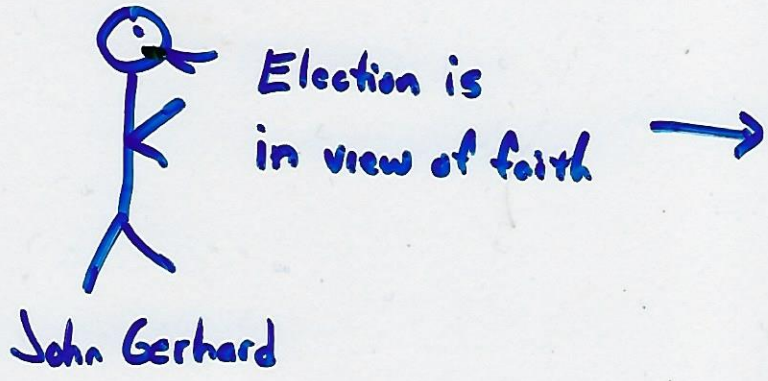 Election is
in view of faith
John Gerhard